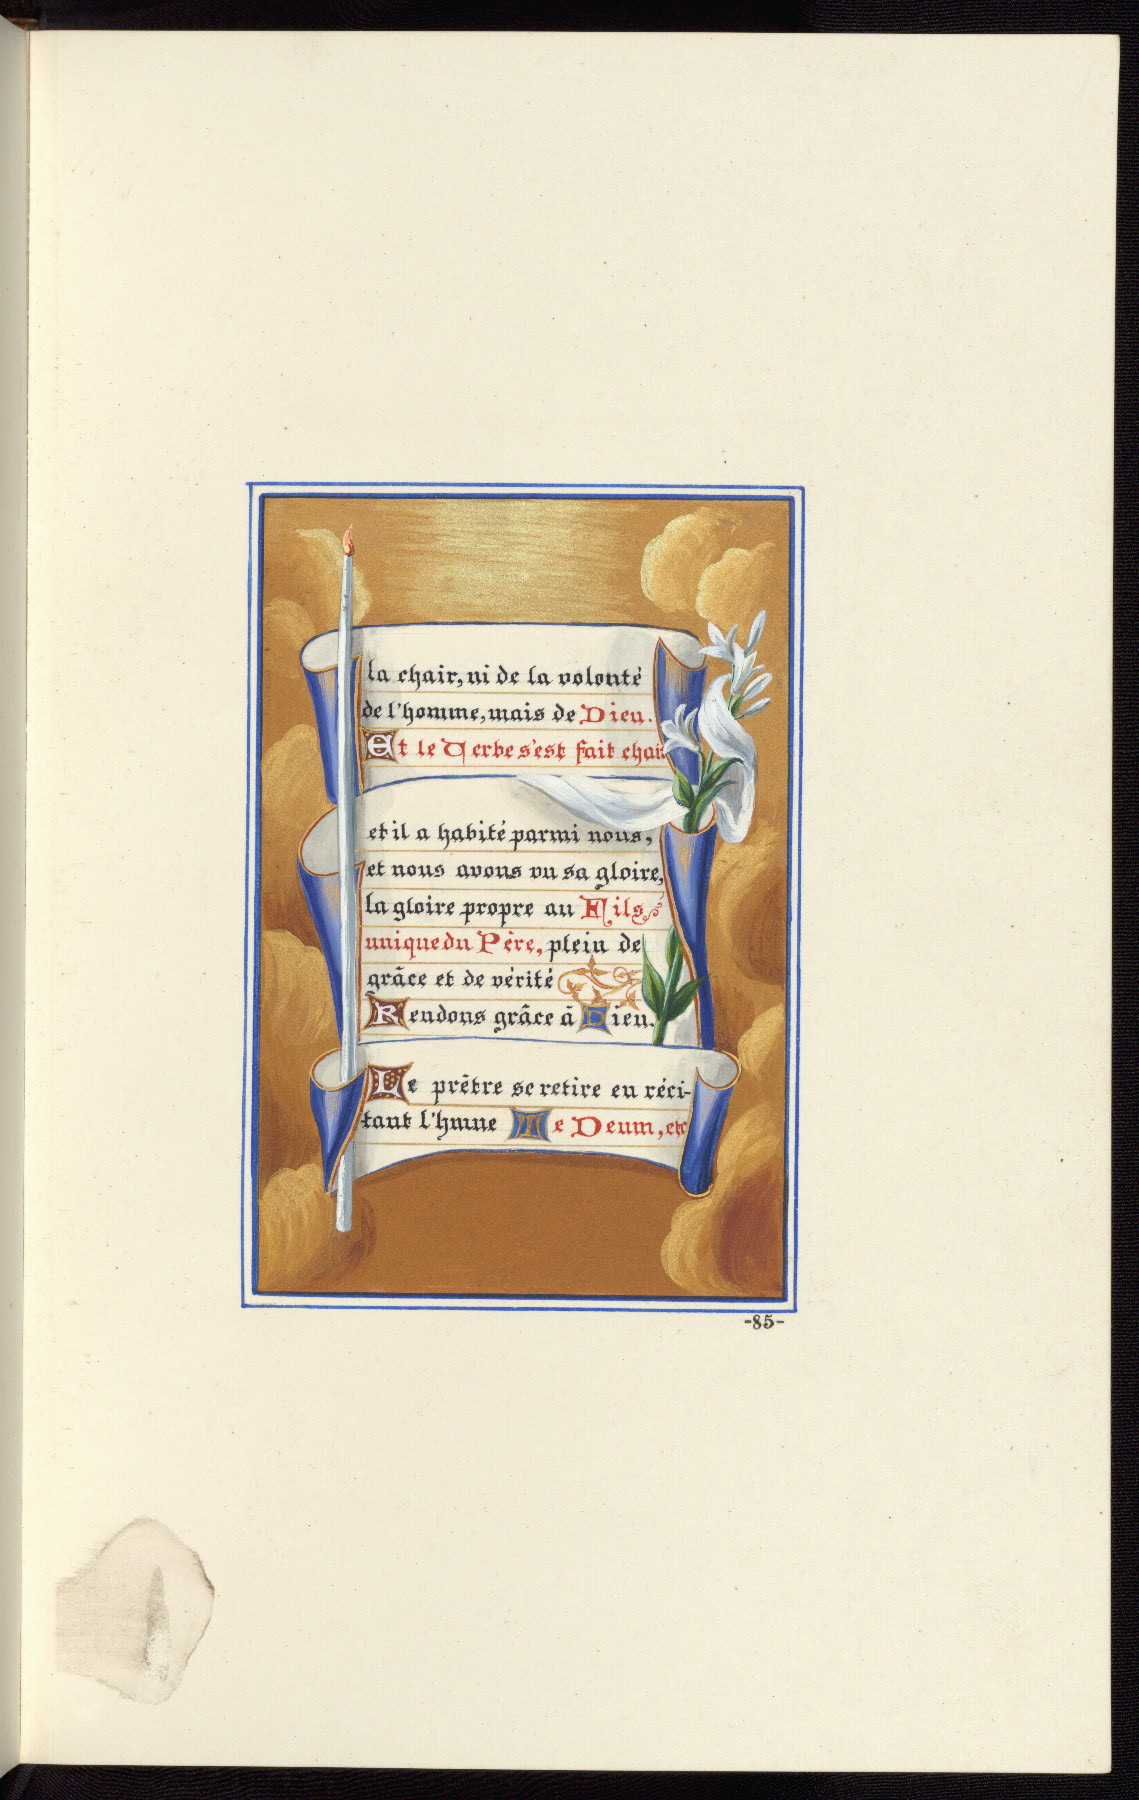 la chair, ni de la volonté
de l'homme, mais de Dieu.
Et le Verbe s'est fait chair
et il a habité parmi nous,
et nous avons vu sa gloire,
la gloire propre au Fils
unique du Père, plein de
grâce et de vérité
Rendons grâce à Dieu.
Le prêtre se retire en réci-
tant l'hmne Te Deum, etc
-85-